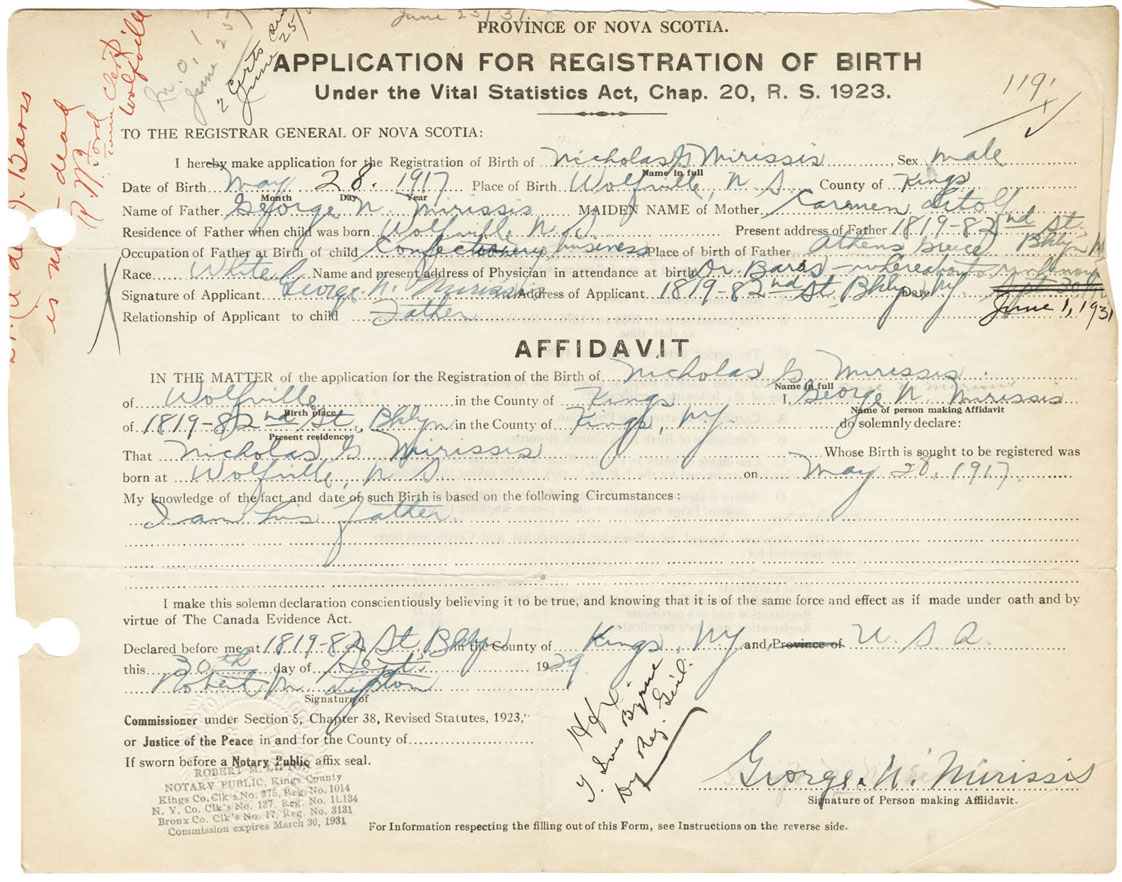 June 25/31
PROVINCE OF NOVA SCOTIA.
APPLICATION FOR REGISTRATION OF BIRTH
Under the Vital Statistics Act, Chap. 20, R. S. 1923.
2 Certs
June 25/
June 25
1191
is now dead
R. W. Ford
Town Clerk
Wolfville
TO THE REGISTRAR GENERAL OF NOVA SCOTIA:
I hereby make application for the Registration of Birth of Nicholas G. Mirissis Sex male
Name in full
Date of Birth May 28. 1917 Place of Birth Wolfville, N. S County of Kings
Month Day Year
Name of Father George N. Mirissis MAIDEN NAME of Mother Carmen Litolf
Residence of Father when child was born Wolfville N. S. Present address of Father 1819-82nd St. Bklyn N
Occupation of Father at Birth of child Confectionery business Place of birth of Father Athens Greece
Race White Name and present address of Physician in attendance at birth Dr Bares - whereabouts unknown
Signature of Applicant George N. Mirissis Address of Applicant 1819-82nd St. Bklyn Ny Date June 1, 1931
Relationship of Applicant to child Father
AFFIDAVIT
IN THE MATTER of the application for the Registration of the Birth of Nicholas G. Mirissis
Name in full
of Wolfville in the County of Kings I, George N. Mirissis
Birth place Name of person making Affidavit
of 1819-82nd St, Bklyn in the County of Kings, Ny do solemnly declare:
Present residence
That Nicholas G Mirissis Whose Birth is sought to be registered was
born at Wolfville, N. S. on May 28, 1917
My knowledge of the fact and date of such Birth is based on the following Circumstances:
I am his father.
I make this solemn declaration conscientiously believing it to be true, and knowing that it is of the same force and effect as if made under oath and by
virtue of The Canada Evidence Act.
Declared before me at 1819-82 St Bklyn in the County of Kings, Ny and Province of U. S. A.
this 30th day of Sept. 1929
Robert M. Lipton
Signature of
Commissioner under Section 5, Chapter 38, Revised Statutes, 1923,
or Justice of the Peace in and for the County of
If sworn before a Notary Public affix seal.
ROBERT M. LIPTON
NOTARY PUBLIC, Kings County
Kings Co. Clk's No. 375, Reg. No. 1014
N. Y. Co. Clk's No. 137, Reg. No. 1L134
Bronx Co. Clk's No. 17, Reg. No. 3131
Commission expires March 30, 1931
Dy Reg. Gen'l.
George. N. Mirissis
Signature of Person making Affidavit.
For Information respecting the filling out of this Form, see Instructions on the reverse side.